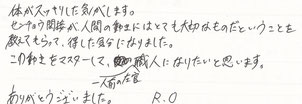 体がスッキリした気がします。
センチョウ関節が人間の動きにはとても大切なものだということを
教えてもらって、得した気分になりました。
この動きをマスターして、職人になりたいと思います。
一人前の左官
ありがとうございました。 R.O